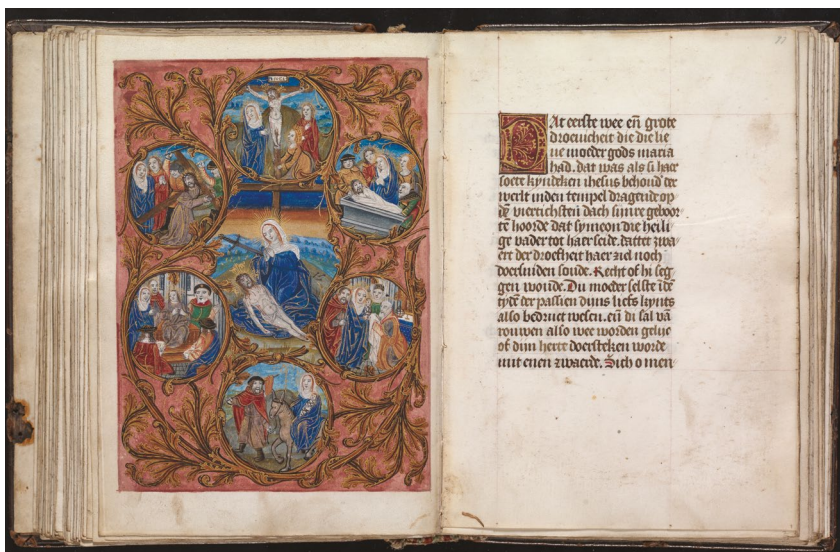 INRI
Dat eerste wee eñ grote
droevicheit die die lie
ve moeder gods maria
had. dat was als si haer
soete kyndeken ihesus behoud der
werlt inden tempel dragende op
dē viertichsten dach sinre geboor
tē hoorde dat symeon die heili
ge vader tot haer seide. dattet zwa
ert der droefheit haer ziel noch
doersniden soude. Recht of hi seg
gen woude. Du moeder selste īdē
tydē der passien dijns liefs kynts
also bedruct wesen. eñ di sal vā
rouwen also wee worden gelijc
of dijn herte doersteken worde
mit enen zwaerde. Sich o men